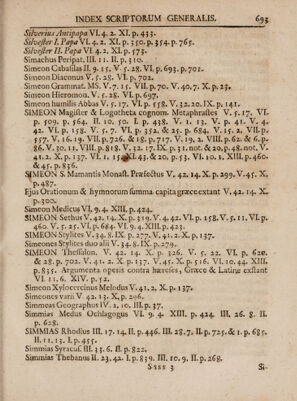 INDEX SCRIPTORUM GENERALIS. 693
Silverius Antipapa VI. 4. 2. XI. p. 433.
Silvester I. Papa VI. 4. 2. XI. p. 350. p. 354. p. 765.
Silvester II. Papa VI. 4. 2. XI. p. 573.
Simachus Peripat. III. 11. II. p. 310.
Simeon Cabasilas II. 9. 15. V. 5. 28. VI. p. 693. p. 701.
Simeon Diaconus V. 5. 28. VI. p. 702.
Simeon Grammat. MS. V. 7. 15. VII. p. 70. V. 40. 7. X. p. 23.
Simeon Hieromon. V. 5. 28. VI. p. 697.
Simeon humilis Abbas V. 5. 17. VI. p. 558. V. 32. 20. IX. p. 141.
SIMEON Magister & Logotheta cognom. Metaphrastes V. 5. 17. VI.
p. 509. p. 564. II. 10. 50. I. p. 438. V. 1. 13. V. p. 41. V. 4.
42. VI. p. 158. V. 5. 7. VI. p. 352. & 25. p. 684. V. 15. 2. VII. p.
557. V. 16. 19. VII. p. 726. & 18. p. 717. V. 19. 2. VIII. p. 62. & 6. p.
86. V. 30. 13. VIII. p. 818. V. 32. 17. IX. p. 31. not. & 20. p. 48. not. V.
41. 2. X. p. 137. VI. 1. 15. XI. 43. & 20. p. 53. VI. 10. 1. XIII. p. 460.
& 45. p. 836.
SIMEON S. Mamantis Monast. Præfectus V. 42. 14. X. p. 299. V. 45. X.
p. 487.
Ejus Orationum & hymnorum summa capita græce extant V. 42. 14. X.
p. 300.
Simeon Medicus VI. 9. 4. XIII. p. 424.
SIMEON Sethus V. 42. 14. X. p. 319. V. 4. 42. VI. p. 158. V. 5. 11. VI. p.
460. V. 5. 25. VI. p. 684. VI. 9. 4. XIII. p. 423.
SIMEON Stylites V. 34. 8. IX. p. 277. V. 41. 2. X. p. 137.
Simeones Stylites duo alii V. 34. 8. IX. p. 279.
SIMEON Thessalon. V. 42. 14. X. p. 326. V. 5. 22. VI. p. 620.
& 28. p. 702. V. 41. 2. X. p. 137. V. 45. X. p. 516. VI. 10. 44. XIII.
p. 835. Argumenta operis contra hæreses, Græce & Latine exstant
VI. 11. 6. XIV. p. 52.
Simeon Xylocercinus Melodus V. 41. 2. X. p. 137.
Simeones varii V. 42. 13. X. p. 296.
Simmeas Geographus IV. 2. 10. III. p. 37.
Simmias Medus Ochlagogus VI. 9. 4. XIII. p. 424. III. 26. 8. II.
p. 628.
SIMMIAS Rhodius III. 17. 14. II. p. 446. III. 28. 7. II. p. 725. & 1. p. 685.
II. 11. 13. I. p. 455.
Simmias Syracus. III. 35. 6. II. p. 822.
Simmias Thebanus II. 23. 42. I. p. 839. III. 10. 9. II. p. 268.
Ssss 3 Si-